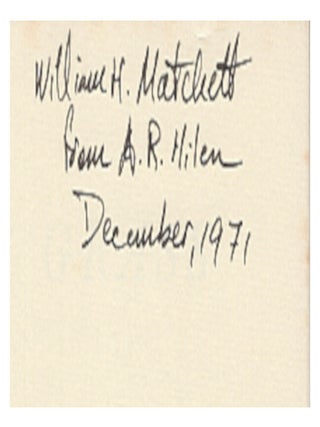 William H. Matchett
from A. R. Hilen
December, 1971